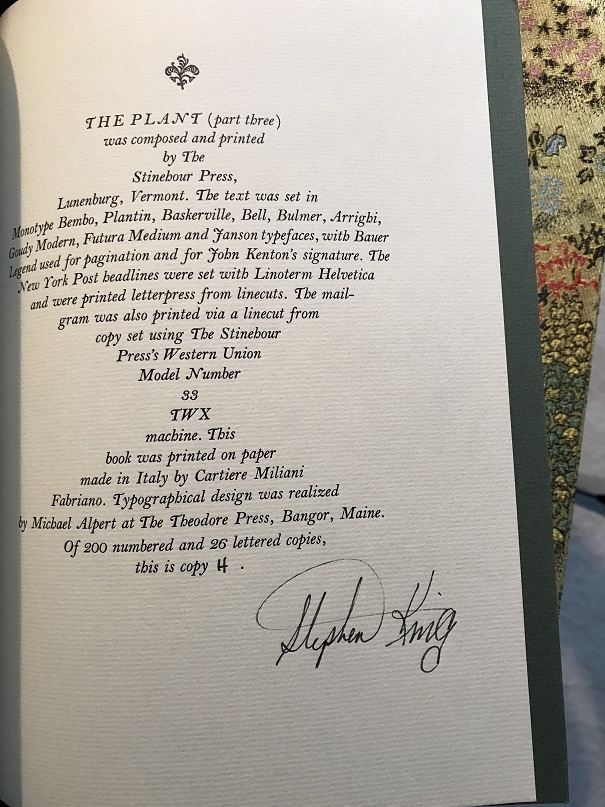 THE PLANT (part three)
was composed and printed
by The
Stinehour Press,
Lunenburg, Vermont. The text was set in
Monotype Bembo, Plantin, Baskerville, Bell, Bulmer, Arrighi,
Goudy Modern, Futura Medium and Janson typefaces, with Bauer
Legend used for pagination and for John Kenton's signature. The
New York Post headlines were set with Linoterm Helvetica
and were printed letterpress from linecuts. The mail-
gram was also printed via a linecut from
copy set using The Stinehour
Press's Western Union
Model Number
33
TWX
machine. This
book was printed on paper
made in Italy by Cartiere Miliani
Fabriano. Typographical design was realized
by Michael Alpert at The Theodore Press, Bangor, Maine.
Of 200 numbered and 26 lettered copies,
this is copy H .
Stephen King